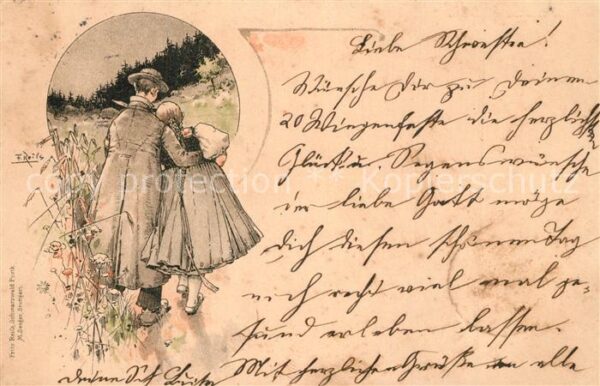 Liebe Schwester!
Wünsche Dir zu Deinem
20 Wiegenfeste die herzlichst
Glück u. Segenswünsche
der liebe Gott möge
Dich diesen schönen Tag
noch recht viel mal ge-
sund erleben lassen.
Mit herzlichen Grüße an alle
Deine Sch
F. Reiss
Fritz Reiss, Schwarzwald Postk.
copyright protection Kopierschutz